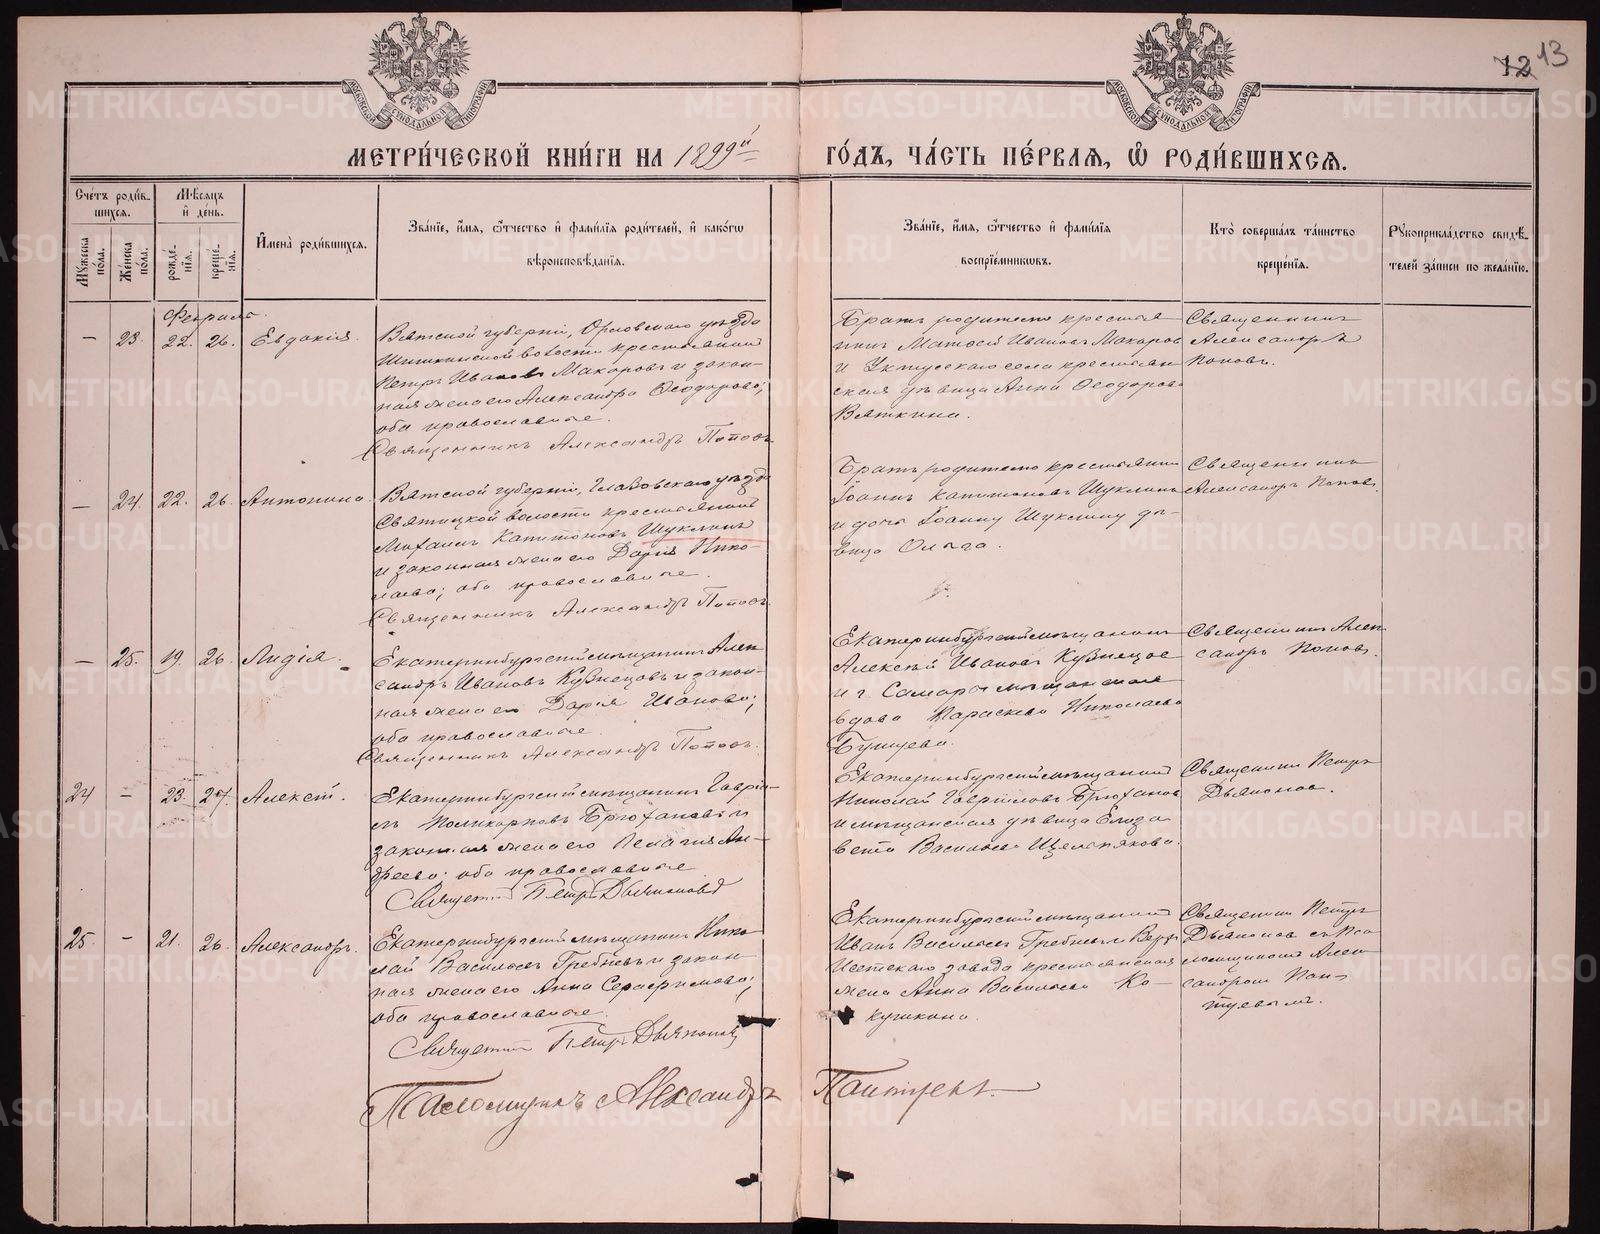 12 13
МЕТРИ́ЧЕСКОЙ КНИ́ГИ НА 1899й
ГО́ДЪ, ЧА́СТЬ ПЕ́РВАЯ, Ѡ РОДИ́ВШИХСЯ.
Сче́тъ роди́в-
шихся.
Му́жеска по́ла.
Же́нска по́ла.
Мѣ́сяцъ
и҆ де́нь.
рожде́-
нїя.
креще́-
нїя.
И҆мена̀ роди́вшихся.
Зва́нїе, и҆́мя, ѻ҆́тчество и҆ фамѝлїя роди́телей, и҆ како́гѡ
вѣроисповѣ́данїя.
Зва́нїе, и҆́мя, ѻ҆́тчество и҆ фами́лїя
воспрїе́мниковъ.
Кто̀ соверша́лъ та́инство
креще́нїя.
Рукоприкла́дство свидѣ́-
телей за́писи по жела́нїю.
Февраля
— 23. 22. 26. Евдокія.
Вятской губерніи, Орловскаго уѣзда
волости крестьянинъ
Петръ Ивановъ Макаровъ и закон-
ная жена его Александра Ѳеодорова;
оба православные.
Священникъ Александръ Поповъ
Братъ родителя крестья-
нинъ Матѳей Ивановъ Макаровъ
и Уктусскаго села крестьян-
ская дѣвица Анна Ѳеодорова
Вяткина.
Священникъ
Александръ
Поповъ.
— 24. 22. 26. Антонина.
Вятской губерніи, Глазовскаго уѣзда
Святицкой волости крестьянинъ
Михаилъ Капитоновъ Шуклинъ
и законная жена его Дарія Нико-
лаева; оба православные.
Священникъ Александръ Поповъ.
Братъ родителя крестьянинъ
Іоаннъ Капитоновъ Шуклинъ
и дочь Іоанну Шуклину дѣ-
вица Ольга.
Священникъ
Александръ Поповъ.
— 25. 19. 26. Лидія.
Екатеринбургскій мѣщанинъ Алек-
сандръ Ивановъ Кузнецовъ и закон-
ная жена его Дарія Иванова;
оба православные.
Священникъ Александръ Поповъ.
Екатеринбургскій мѣщанинъ
Алексѣй Ивановъ Кузнецовъ
и г. Самары мѣщанская
вдова Параскева Николаева
Священникъ Алек-
сандръ Поповъ.
24 — 23. 27. Алексѣй.
Екатеринбургскій мѣщанинъ Гаврі-
илъ Поликарповъ Брюхановъ и
законная жена его Пелагія Ан-
дреева; оба православные
Священникъ Петръ Дьяконовъ
Екатеринбургскій мѣщанинъ
Николай Гавріиловъ Брюхановъ
и мѣщанская дѣвица Елиза-
вета Васильева
Священникъ Петръ
Дьяконовъ.
25. — 21. 26. Александръ.
Екатеринбургскій мѣщанинъ Нико-
лай Васильевъ Гребневъ и закон-
ная жена его Анна Серафимова;
оба православные.
Священникъ Петръ Дьяконовъ
Екатеринбургскій мѣщанинъ
Иванъ Васильевъ Гребневъ и Верх-
Исетскаго завода крестьянская
жена Анна Васильева Ко-
кушкина.
Священникъ Петръ
Дьяконовъ съ Пса-
ломщикомъ Алек-
сандромъ
Псаломщикъ Александръ